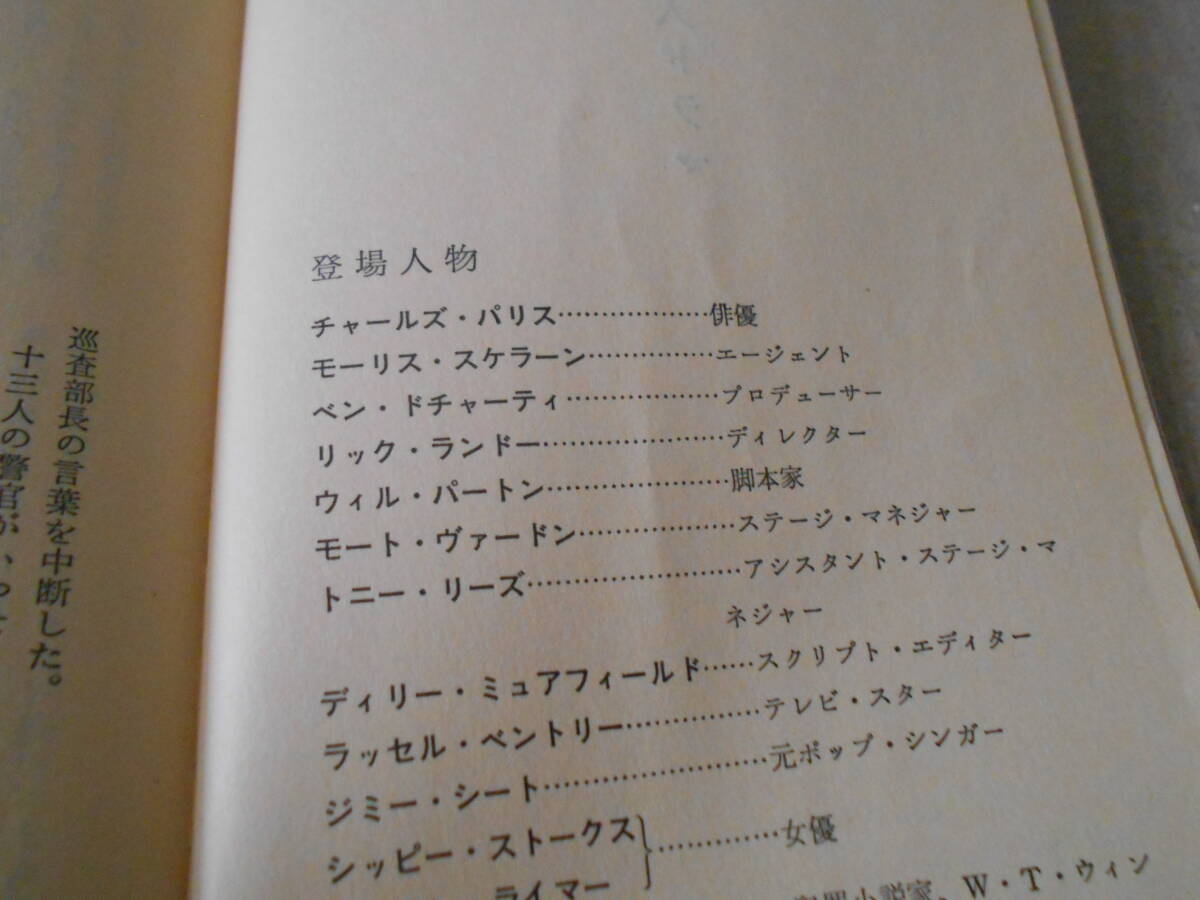 巡査部長の言葉を中断した。
十三人の警官が、
登場人物
チャールズ・パリス………………俳優
モーリス・スケラーン……………エージェント
ベン・ドチャーティ………………プロデューサー
リック・ランドー…………………ディレクター
ウィル・パートン…………………脚本家
モート・ヴァードン………………ステージ・マネジャー
トニー・リーズ……………………アシスタント・ステージ・マ
ネジャー
ディリー・ミュアフィールド……スクリプト・エディター
ラッセル・ベントリー……………テレビ・スター
ジミー・シート……………………元ポップ・シンガー
シッピー・ストークス}…………女優
ライマー
小説家、W・T・ウィン